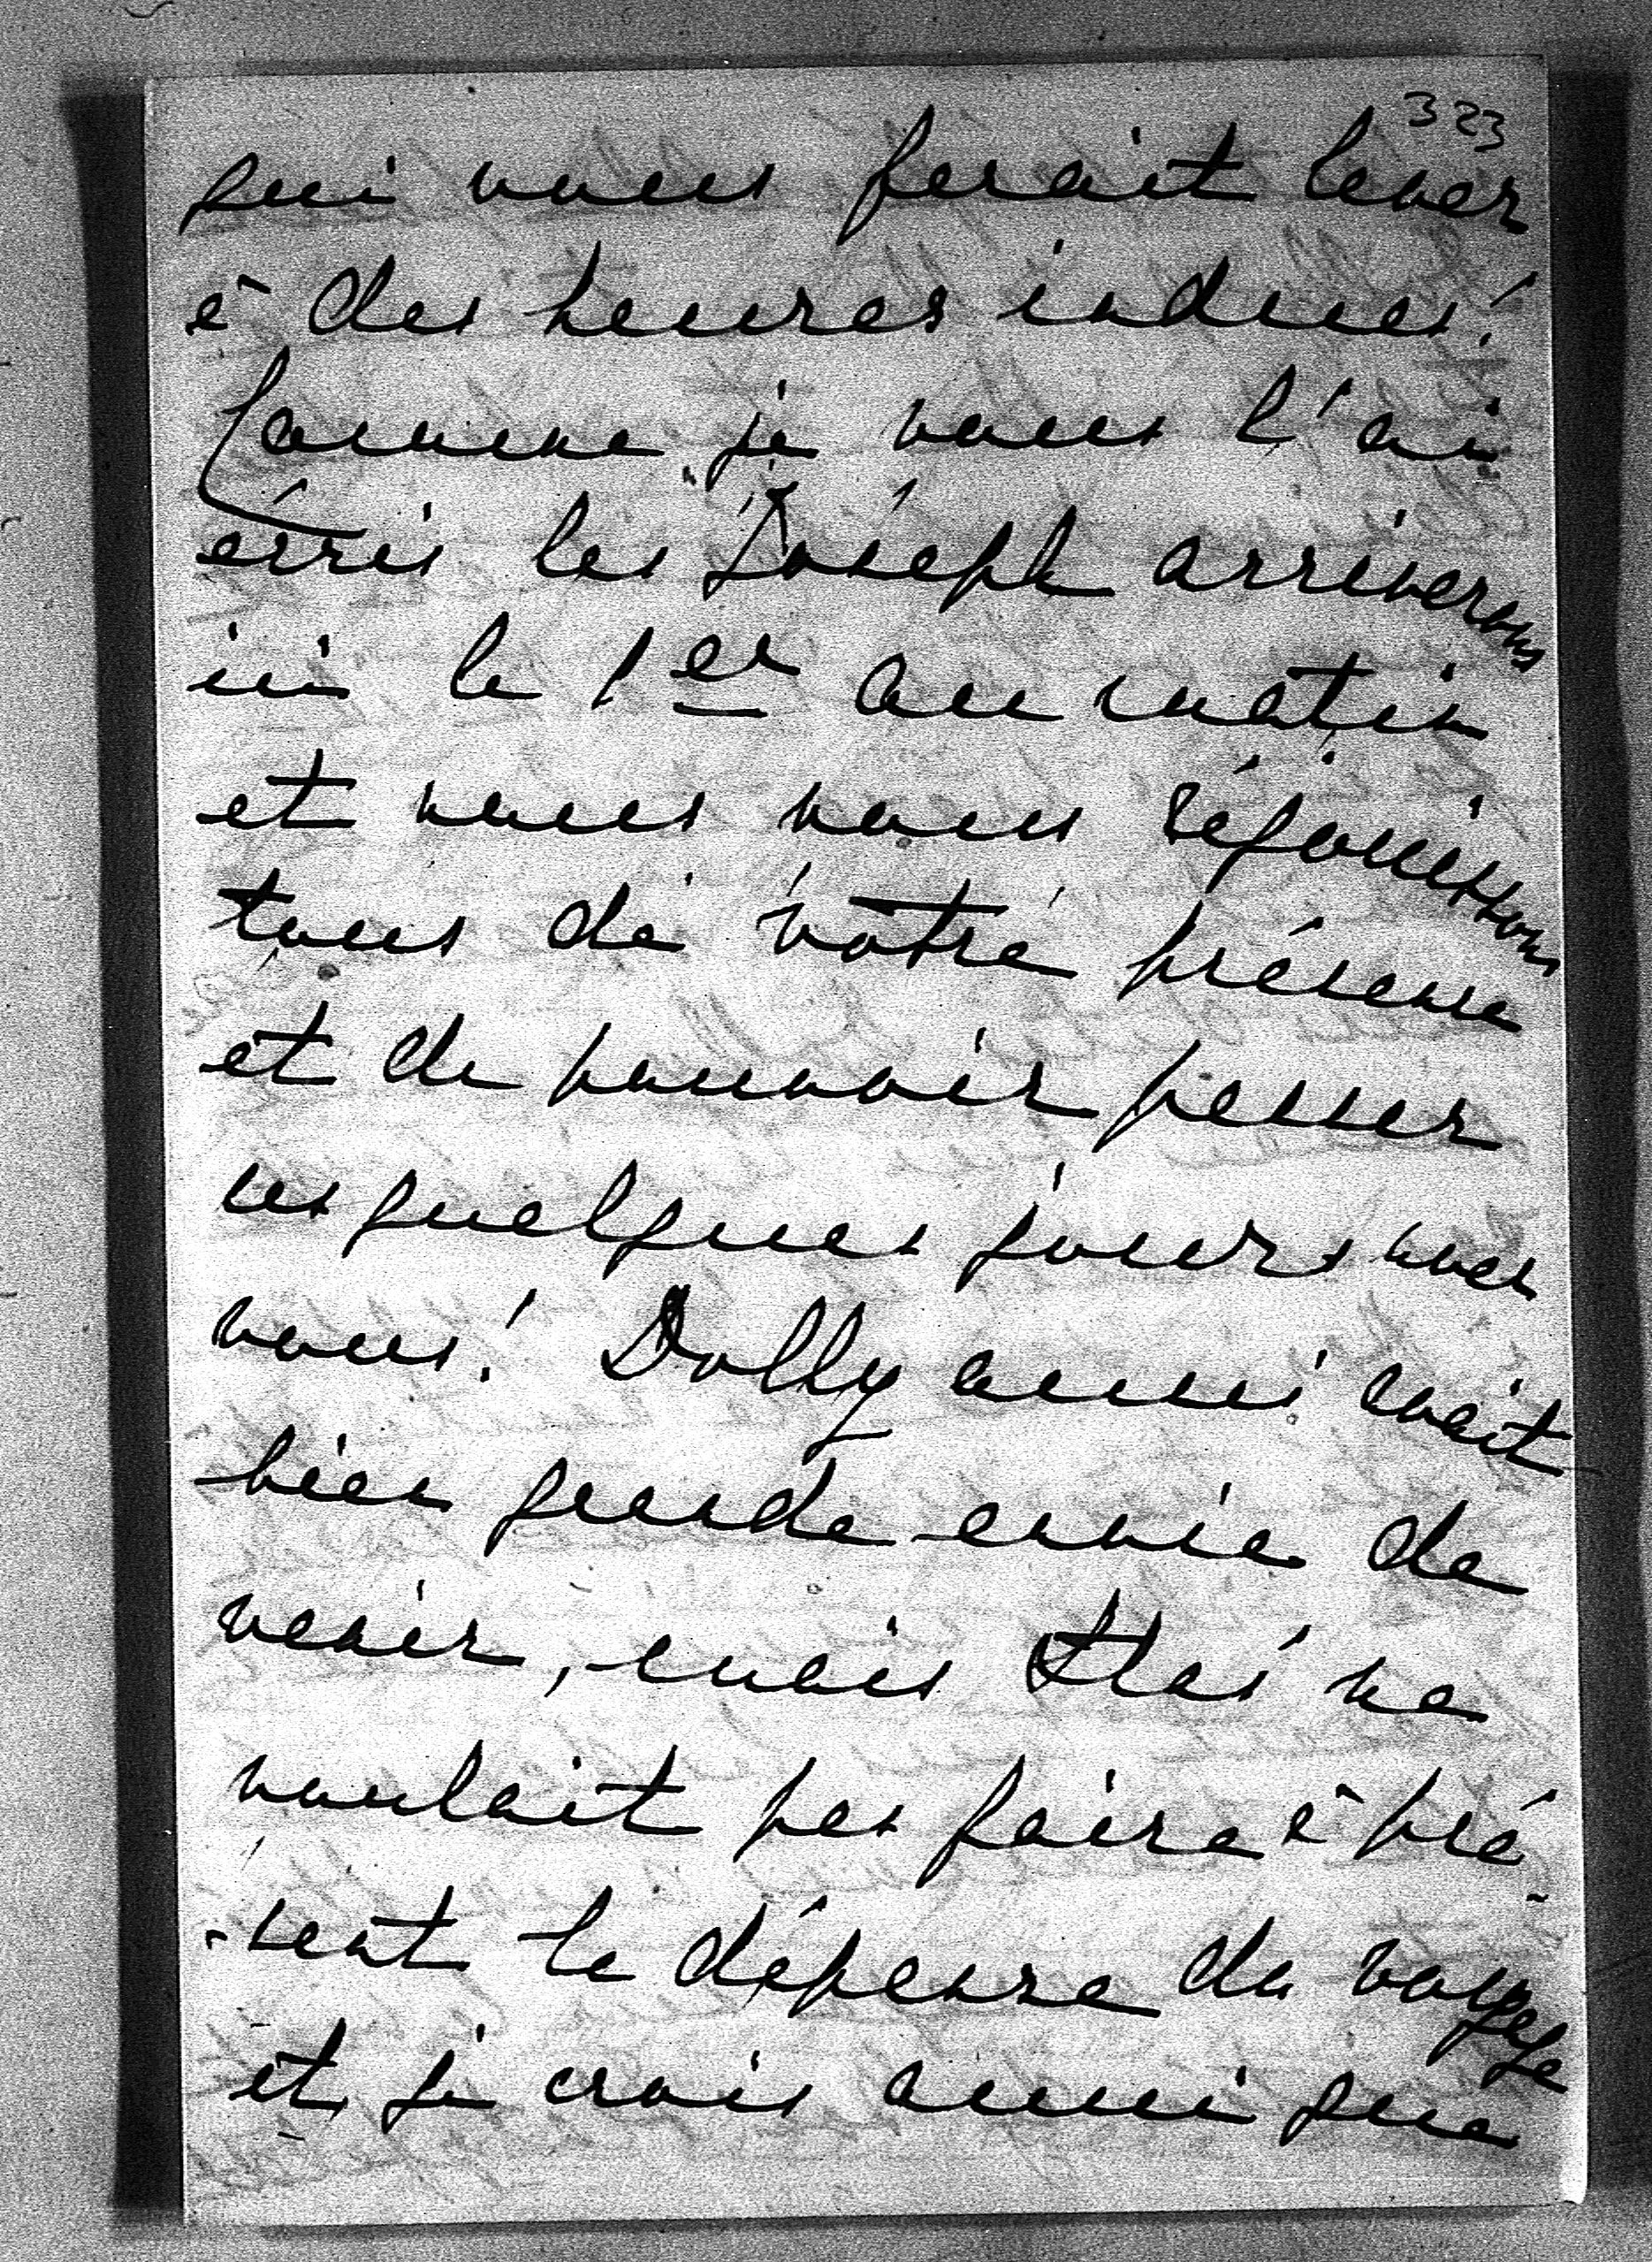 323
qui vous ferait lever
à des heures indues!
Comme je vous l'ai
écris les Joseph arriverons
ici le 1er au matin
et nous nous réjouissons
tous de votre présence
et de pouvoir passer
ces quelques jours avec
vous! Dolly aussi avait
bien grande envie de
venir, mais ne
voulait pas faire à pré-
-sent la dépense du voyage
et je crois aussi que